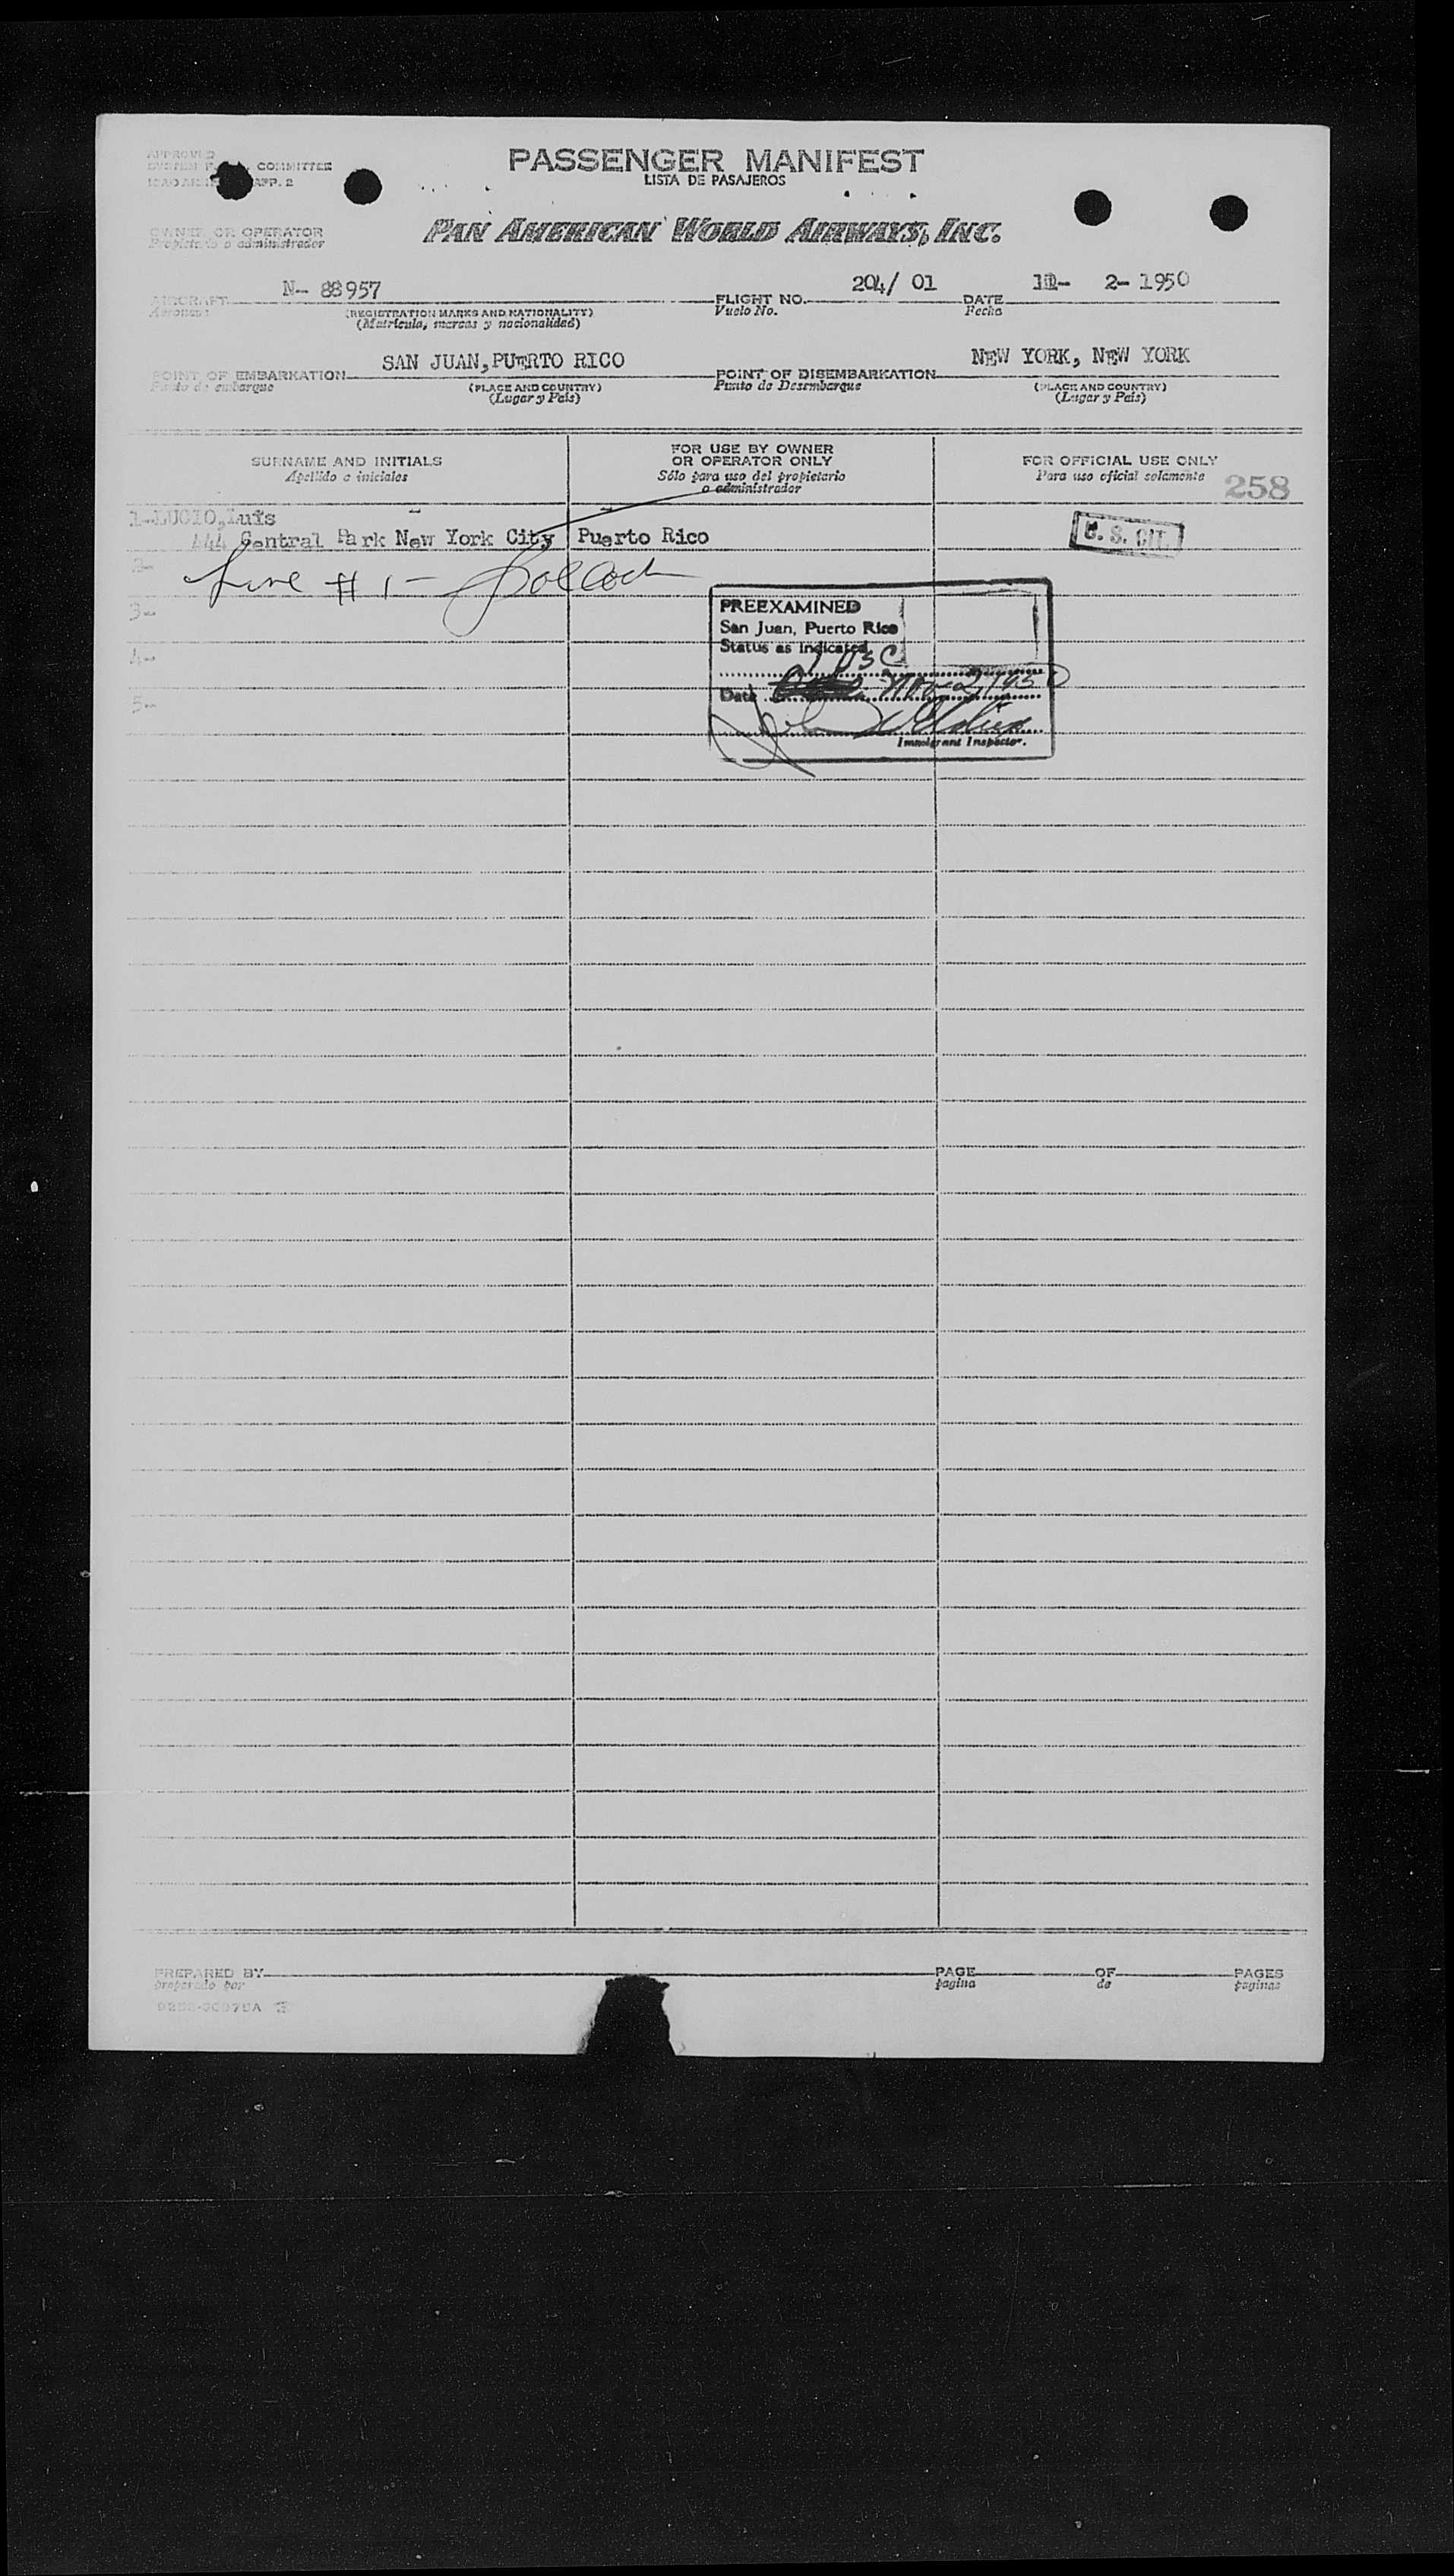 APPROVED
COMMITTEE
APP. 2
PASSENGER MANIFEST
LISTA DE PASAJEROS
OWNER OR OPERATOR
Propietario o administrador
PAN AMERICAN WORLD AIRWAYS, INC.
AIRCRAFT N- 88957 FLIGHT NO. 204/ 01 DATE 11- 2- 1950
Aeronave (REGISTRATION MARKS AND NATIONALITY) Vuelo No. Fecha
(Matrícula, marcas y nacionalidad)
POINT OF EMBARKATION SAN JUAN,PUERTO RICO POINT OF DISEMBARKATION NEW YORK, NEW YORK
Punto de embarque (PLACE AND COUNTRY) Punto de Desembarque (PLACE AND COUNTRY)
(Lugar y País) (Lugar y País)
SURNAME AND INITIALS
Apellido e iniciales
FOR USE BY OWNER
OR OPERATOR ONLY
Sólo para uso del propietario
o administrador
FOR OFFICIAL USE ONLY
Para uso oficial solamente
258
1-LUCIO,Luis
444 Central Park New York City Puerto Rico
U. S. CIT.
2-
Line # 1 -
3-
4-
5-
PREEXAMINED
San Juan, Puerto Rico
Status as indicated
1 USC
Date Nov 2, 1950
Immigrant Inspector.
PREPARED BY PAGE OF PAGES
preparado por pagina de paginas